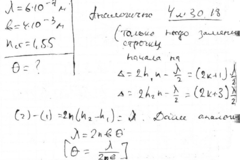 λ = 6·10⁻⁷ м
b = 4·10⁻³ м
nст = 1,55
θ = ?
Аналогично 4м30.18
(только надо
начала на
Δ = 2h₁n - λ/2 = (2k+1) λ/2
Δ = 2h₂n - λ/2 = (2k+3) λ/2
(2)-(1) = 2n(h₂-h₁) = λ. Далее аналог
λ = 2nbθ
[θ = λ/2nb]